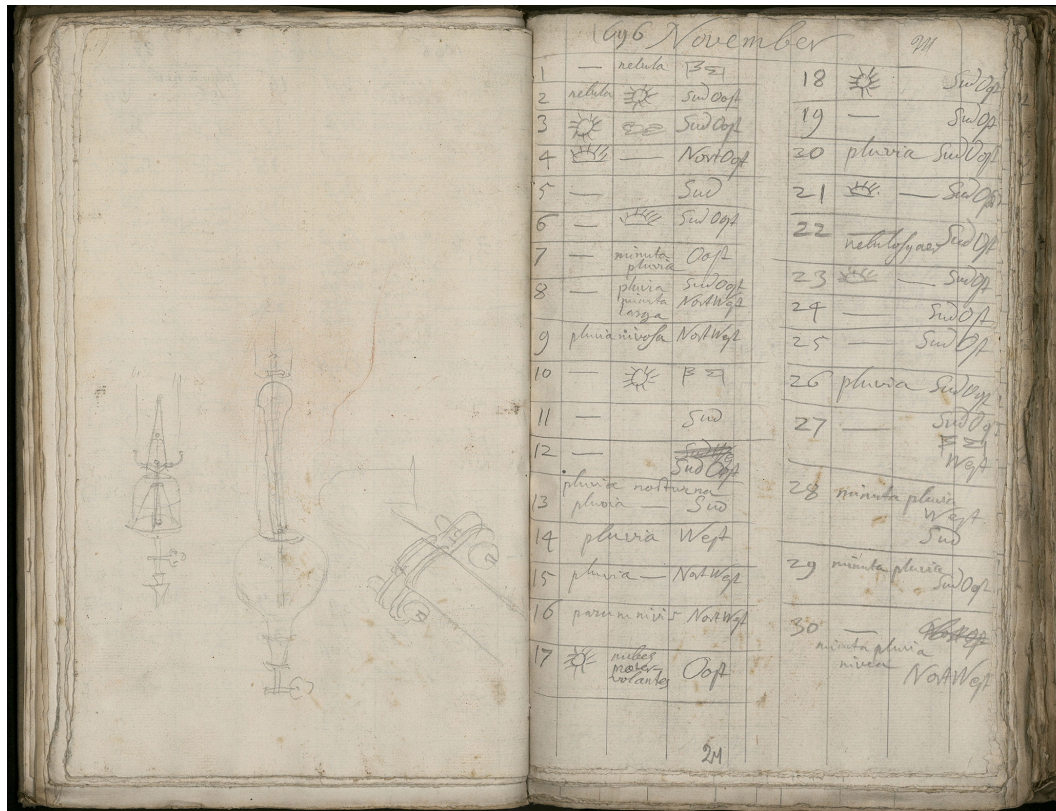 1696 November
1 — nebula
2 nebula Sud Oost
3 Sud Oost
4 — Nort Oost
5 — Sud
6 — Sud Oost
7 — minuta Oost
pluvia
8 — pluvia Sud Oost
minuta Nort West
larga
9 pluvia nivosa Nort West
10 —
11 — Sud
12 —
Sud Oost
pluvia nocturna
13 pluvia — Sud
14 pluvia West
15 pluvia — Nort West
16 parum nivis Nort West
17 nubes Oost
volantes
18 Sud Ost
19 — Sud Ost
20 pluvia Sud Ost
21 — Sud Ost
22 — Sud Ost
23 — Sud Ost
24 — Sud Ost
25 — Sud Ost
26 pluvia Sud Ost
27 — Sud Ost
West
28 minuta pluvia
West
Sud
29 minuta pluvia
Sud Oost
30 —
minuta pluvia
nivea
Nort West